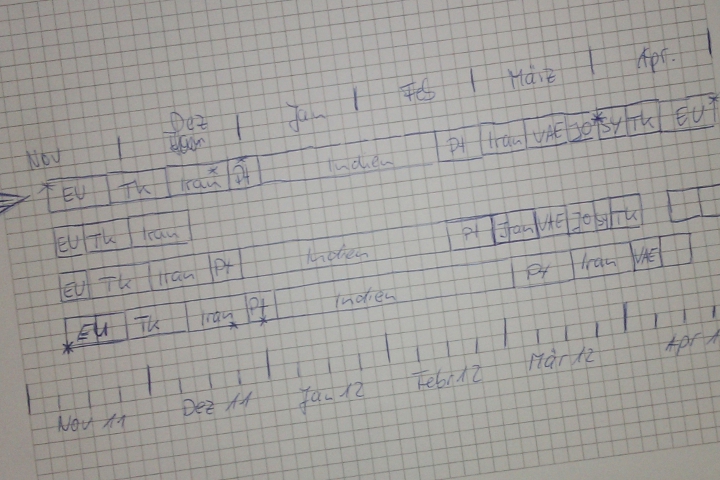 Nov Dez Jan Feb März Apr.
EU Tk Iran Pt Indien Pt Iran VAE JO SY TK EU
EU Tk Iran
EU Tk Iran Pt Indien Pt Iran VAE JO SY Tk
EU Tk Iran Pt Indien Pt Iran VAE
Nov 11 Dez 11 Jan 12 Febr 12 Mär 12 Apr 1